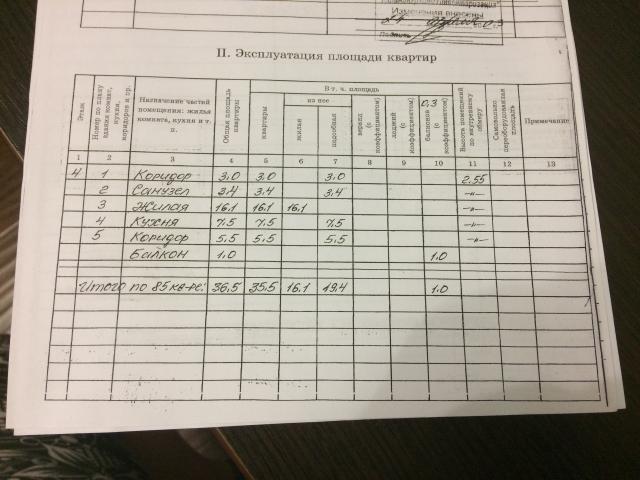 Изменения внесены
24
II. Эксплуатация площади квартир
Этаж
Номер по плану здания комнат, кухни, коридоров и пр.
Назначение частей помещения: жилая комната, кухня и т. п.
Общая площадь квартиры
В т. ч. площадь
квартиры
из нее
жилая
подсобная
веранд (с коэффициентом)
лоджий (с коэффициентом)
0,3
балконов (с коэффициентом)
Высота помещений по внутреннему обмеру
Самовольно переоборудованная площадь
Примечание
1 2 3 4 5 6 7 8 9 10 11 12 13
4 1 Коридор 3.0 3.0 3.0 2.55
2 Санузел 3.4 3.4 3.4 -"-
3 Жилая 16.1 16.1 16.1 -"-
4 Кухня 7.5 7.5 7.5 -"-
5 Коридор 5.5 5.5 5.5 -"-
Балкон 1.0 1.0
Итого по 85 кв-ре: 36.5 35.5 16.1 19.4 1.0